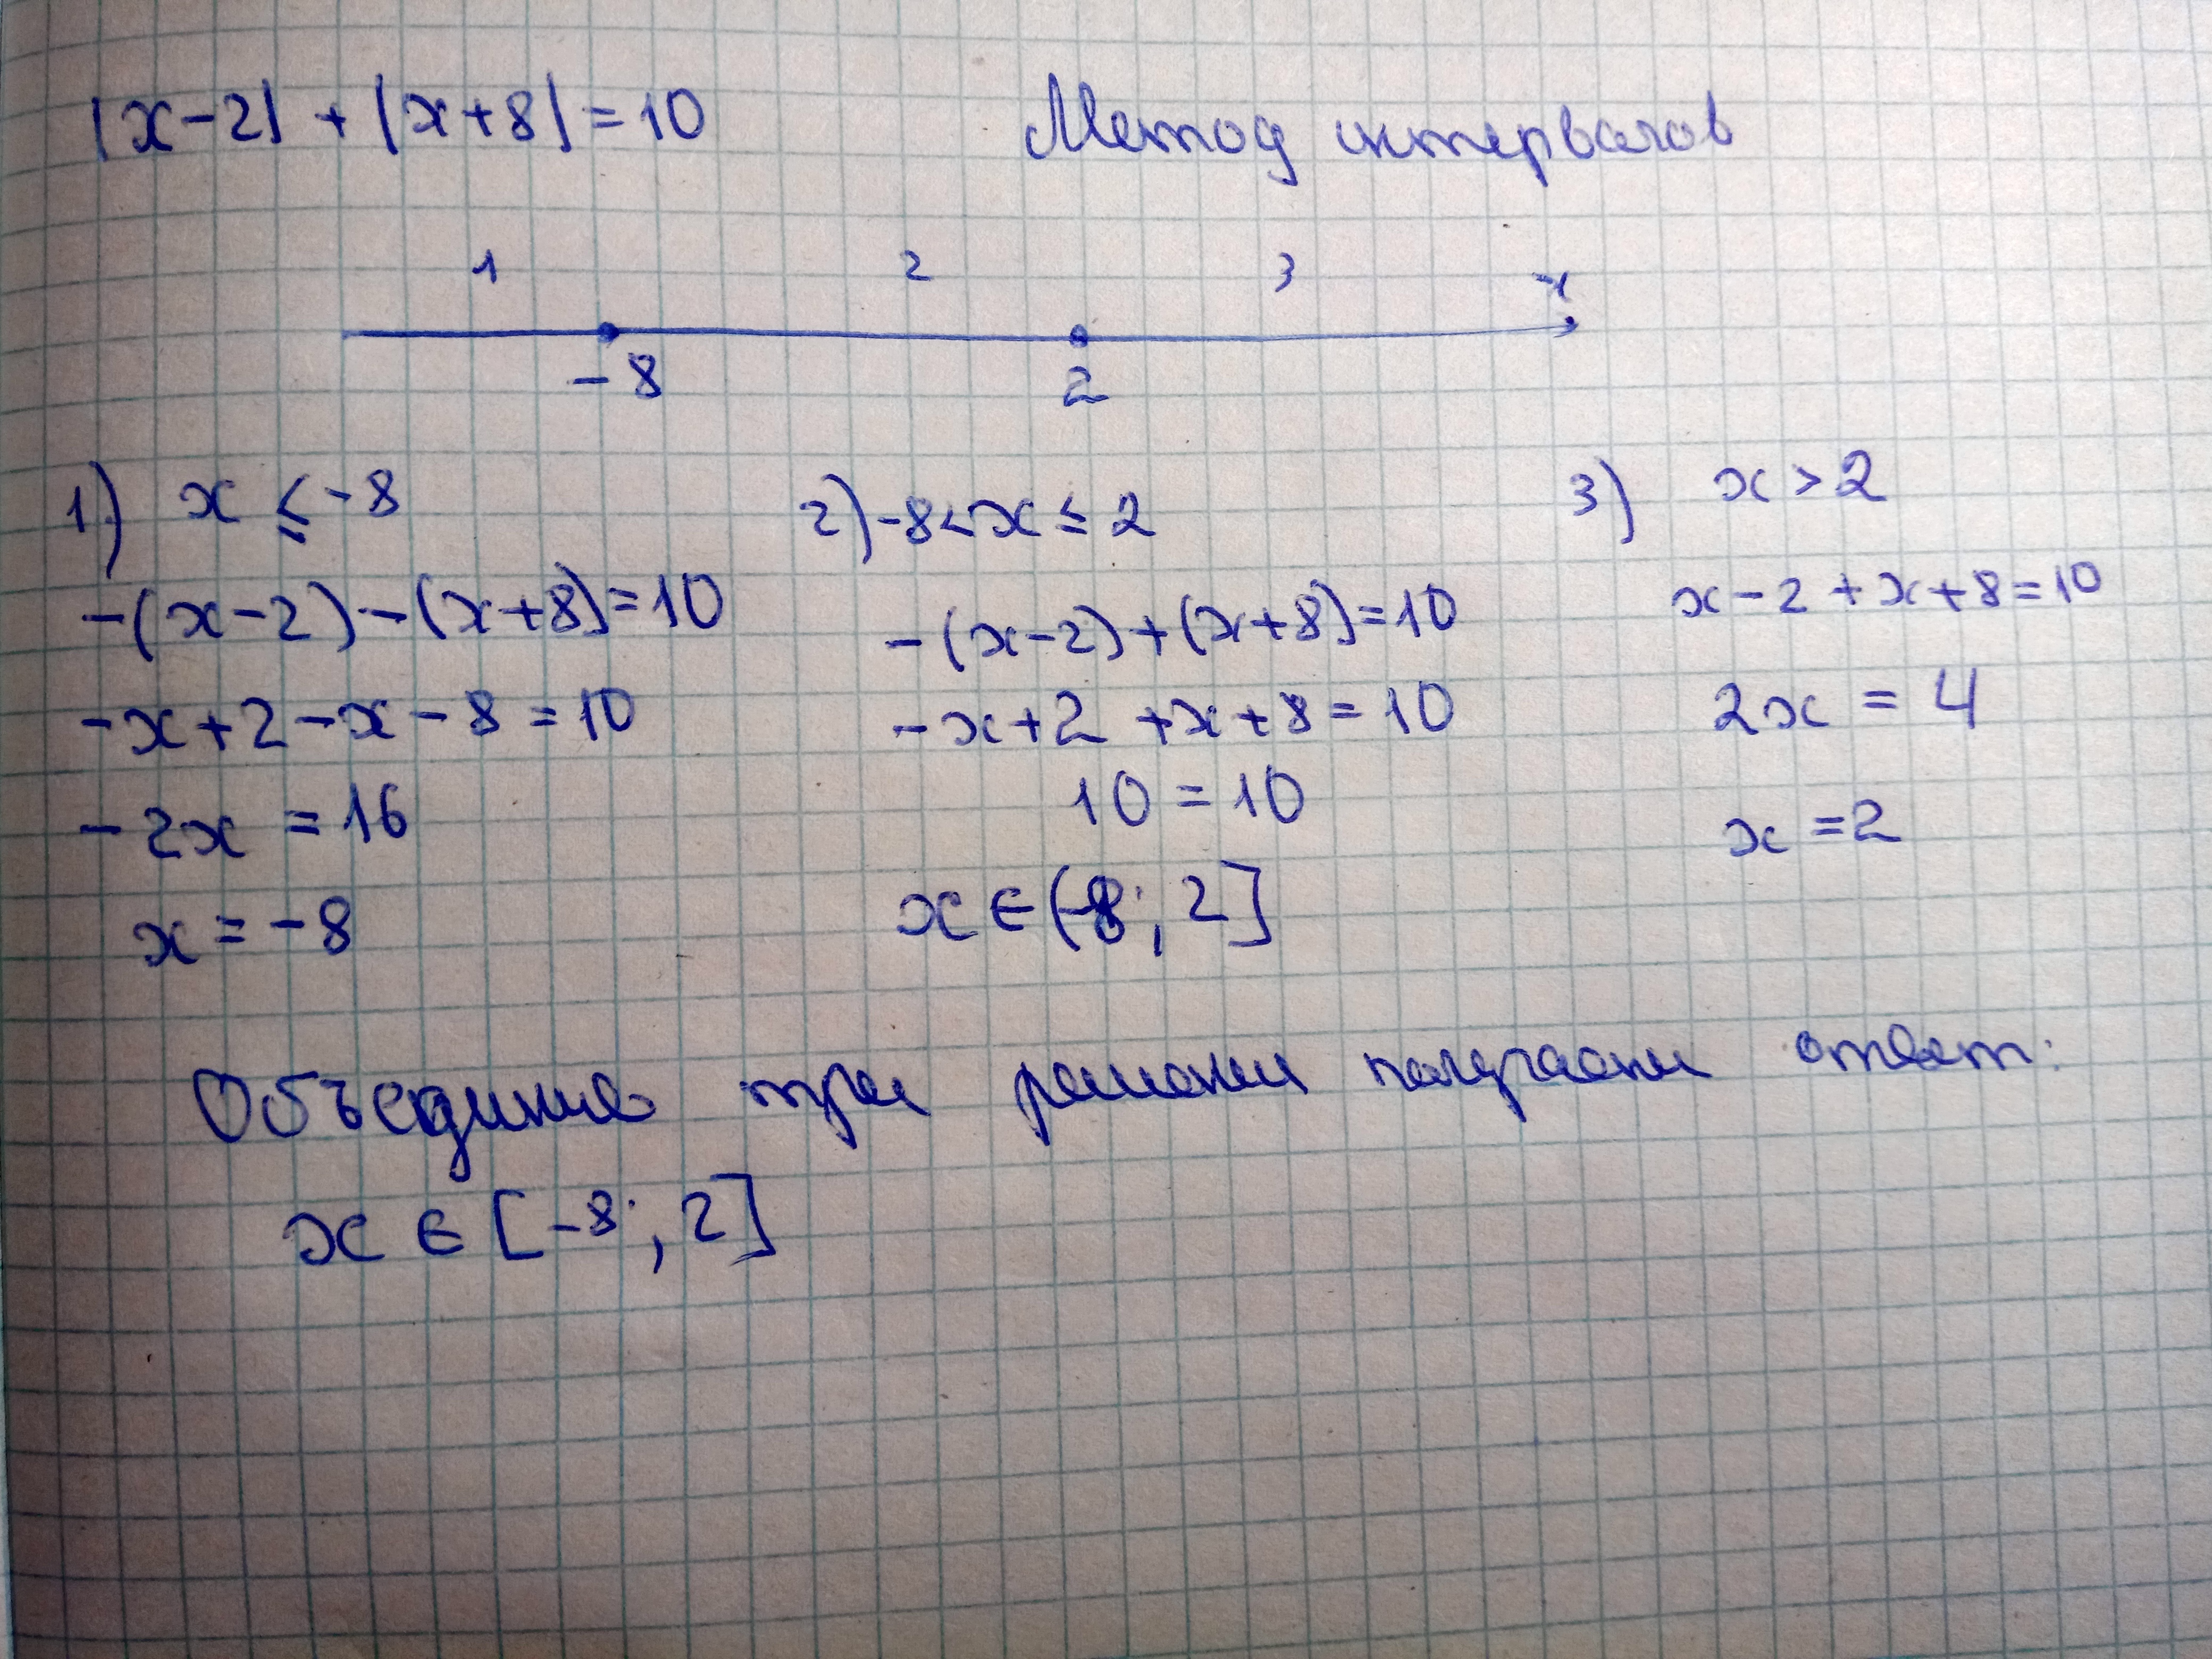 |x-2| + |x+8| = 10 Метод интервалов
1 2 3 x
-8 2
1) x ≤ -8
-(x-2)-(x+8)=10
-x+2-x-8=10
-2x = 16
x = -8
2) -8<x≤2
-(x-2)+(x+8)=10
-x+2 +x+8=10
10 = 10
x∈(-8; 2]
3) x>2
x-2+x+8=10
2x = 4
x =2
Объединив три решения получаем ответ:
x ∈ [-8; 2]